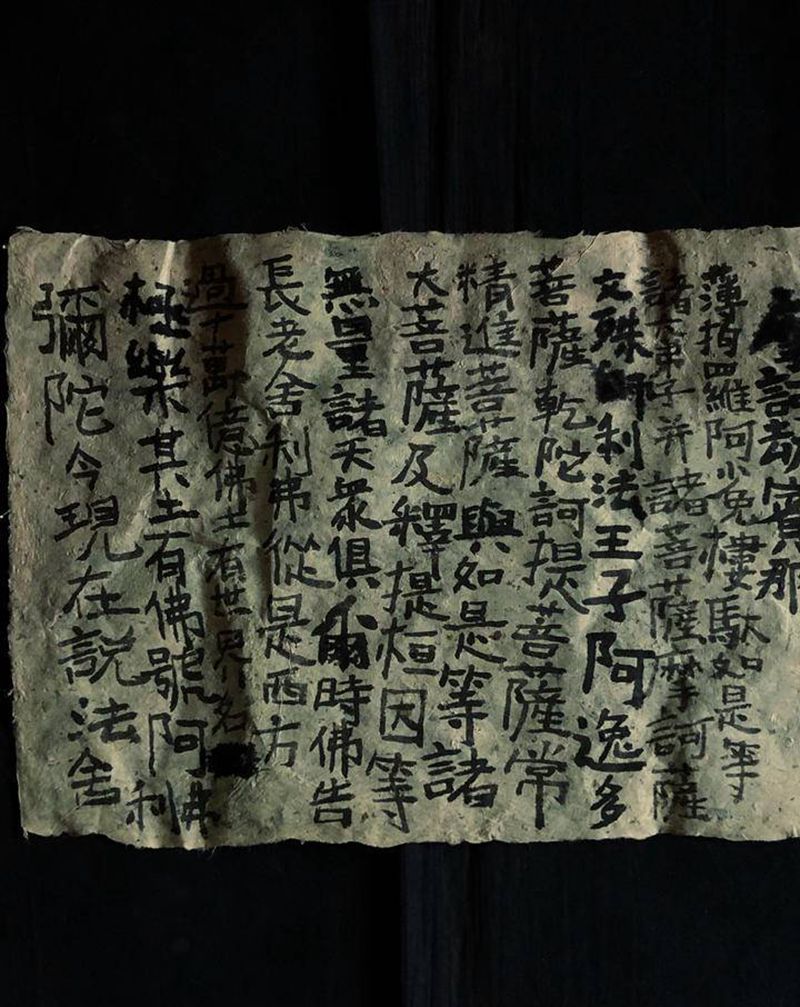 訶劫賓那
薄拘羅阿㝹樓馱如是等
諸大弟子并諸菩薩摩訶薩
文殊師利法王子阿逸多
菩薩乾陀訶提菩薩常
精進菩薩與如是等諸
大菩薩及釋提桓因等
無量諸天衆俱爾時佛告
長老舍利弗從是西方
過十萬億佛土有世界名
極樂其土有佛號阿
彌陀今現在說法舍
利弗